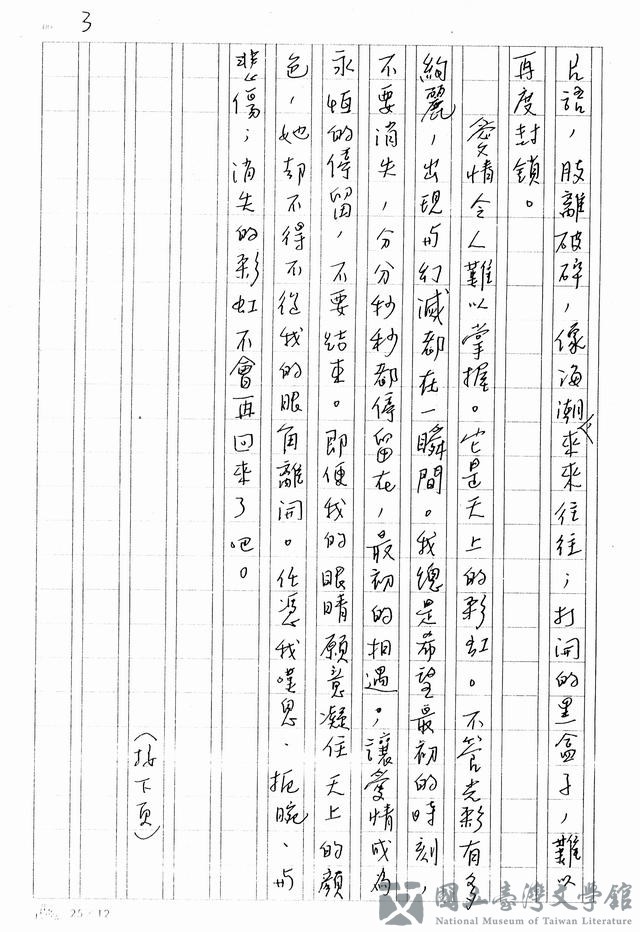 3
片語，肢離破碎，像海潮來來往往；打開的黑盒子，難以
再度封鎖。
愛情令人難以掌握。它是天上的彩虹。不管光彩有多
絢麗，出現與幻滅都在一瞬間。我總是希望最初的時刻，
不要消失，分分秒秒都停留在，最初的相遇。讓愛情成為
永恒的停留，不要結束。即便我的眼睛願意凝住天上的顏
色，她却不得不從我的眼角離開。任憑我嘆息、扼腕、與
悲傷；消失的彩虹不會再回來了吧。
（接下頁）
25×12
國立臺灣文學館
National Museum of Taiwan Literature